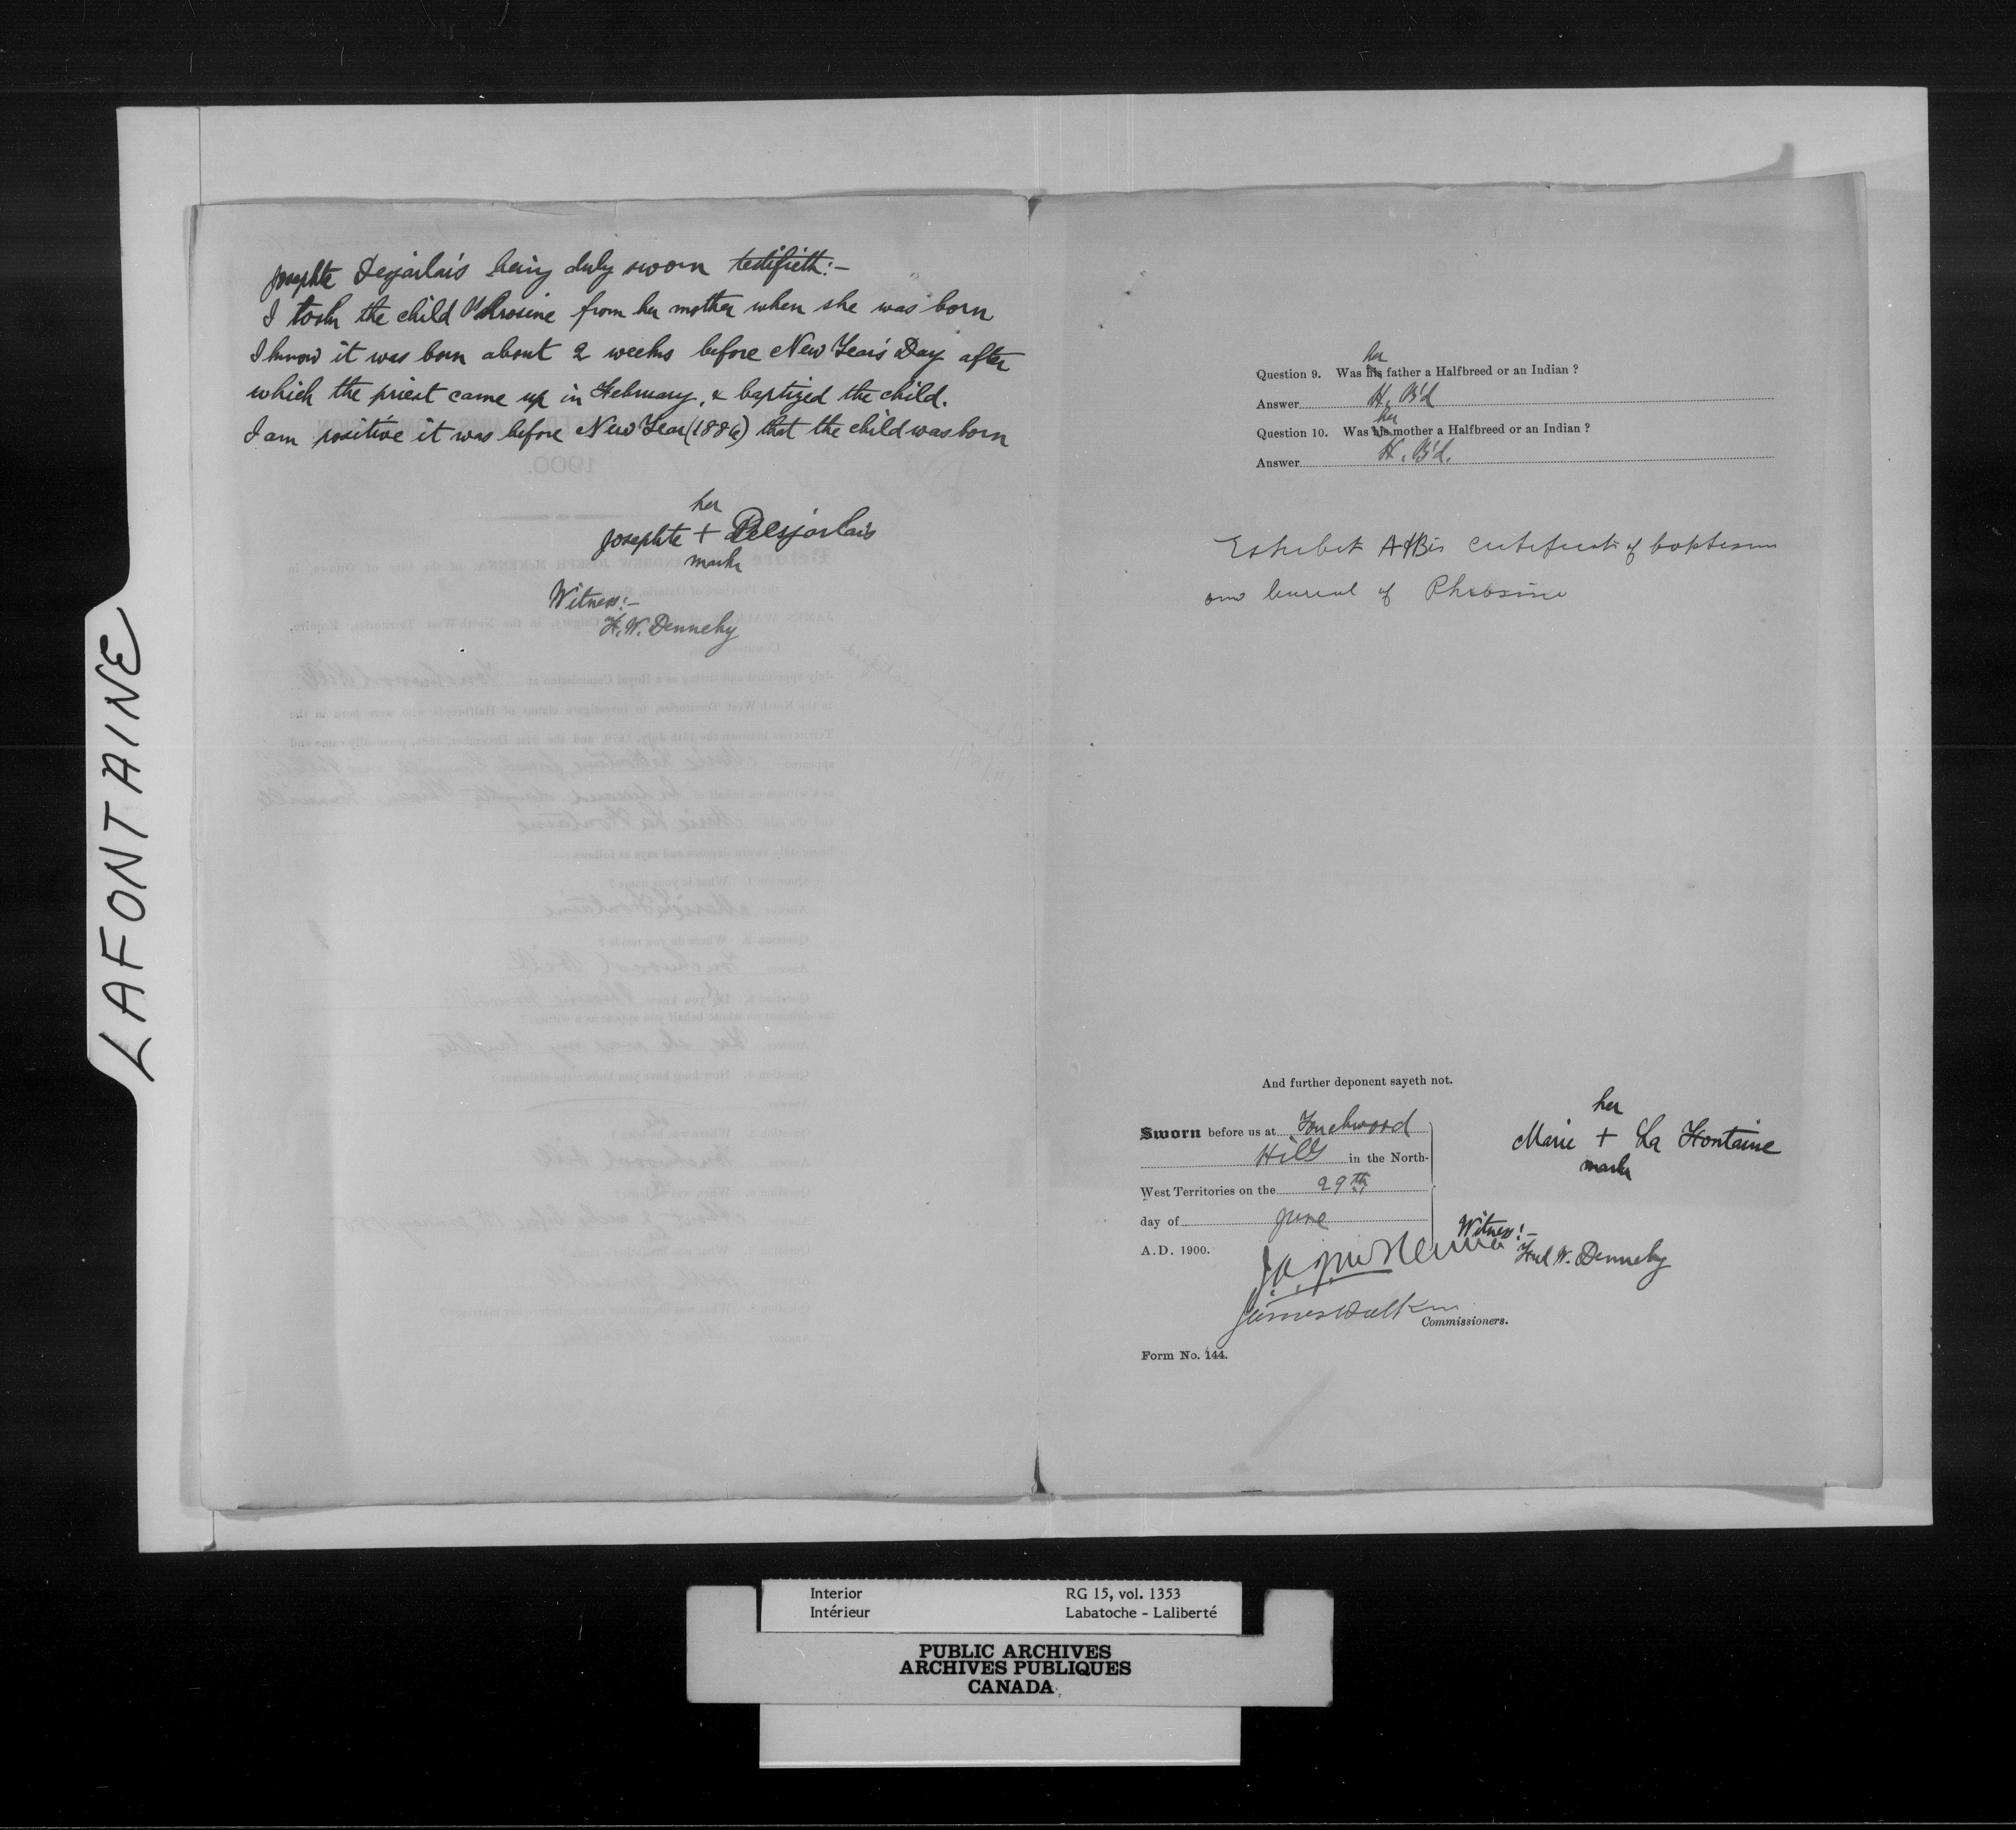 LAFONTAINE
Josephte Desjarlais being duly sworn testifieth:-
I took the child Phrosine from her mother when she was born
I know it was born about 2 weeks before New Year's Day after
which the priest came up in February, & baptized the child.
I am positive it was before New Year (1886) that the child was born
her
Josephte + Desjarlais
mark
Witness:-
H. W. Dennehy
her
Question 9. Was his father a Halfbreed or an Indian ?
Answer H. B'd
her
Question 10. Was his mother a Halfbreed or an Indian ?
Answer H. B'd.
Exhibit A & B is certificate of baptism
and burial of
And further deponent sayeth not.
Sworn before us at Touchwood
Hills in the North-
West Territories on the 29th
day of June
A.D. 1900.
her
Marie + La Fontaine
mark
Witness:-
Fred W. Dennehy
James Walker
Commissioners.
Form No. 144.
Interior
Intérieur
RG 15, vol. 1353
Labatoche - Laliberté
PUBLIC ARCHIVES
ARCHIVES PUBLIQUES
CANADA